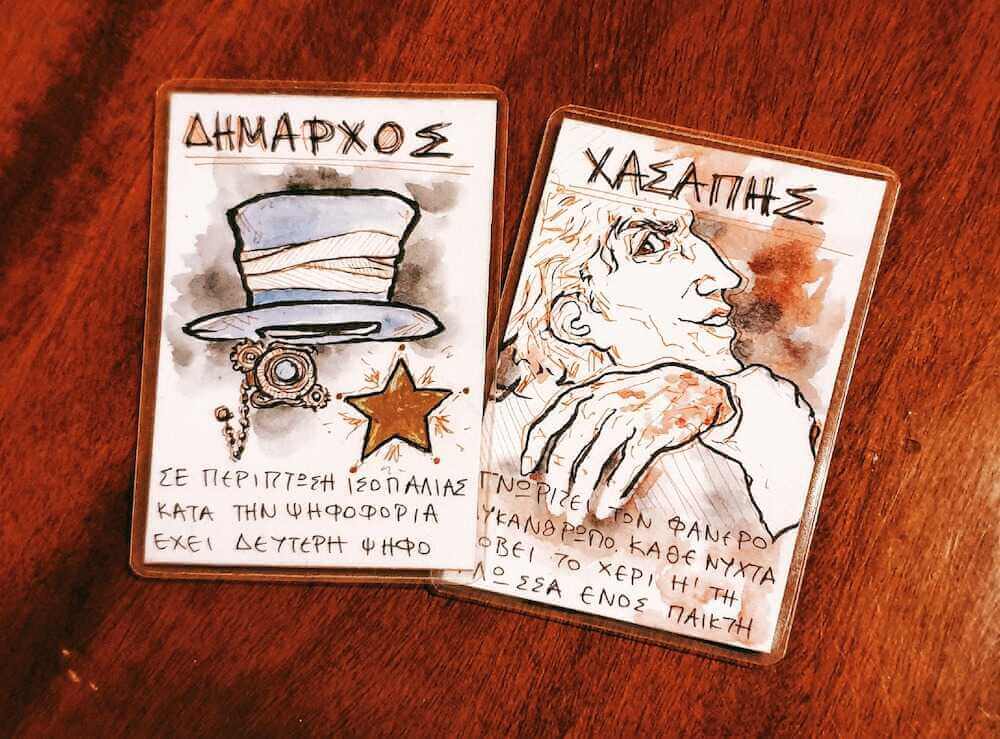 ΔΗΜΑΡΧΟΣ
ΣΕ ΠΕΡΙΠΤΩΣΗ ΙΣΟΠΑΛΙΑΣ
ΚΑΤΑ ΤΗΝ ΨΗΦΟΦΟΡΙΑ
ΕΧΕΙ ΔΕΥΤΕΡΗ ΨΗΦΟ
ΧΑΣΑΠΗΣ
ΓΝΩΡΙΖΕΙ ΤΟΝ ΦΑΝΕΡΟ
ΥΚΑΝΘΡΩΠΟ. ΚΑΘΕ ΝΥΧΤΑ
ΟΒΕΙ ΤΟ ΧΕΡΙ Η' ΤΗ
ΛΩΣΣΑ ΕΝΟΣ ΠΑΙΚΤΗ